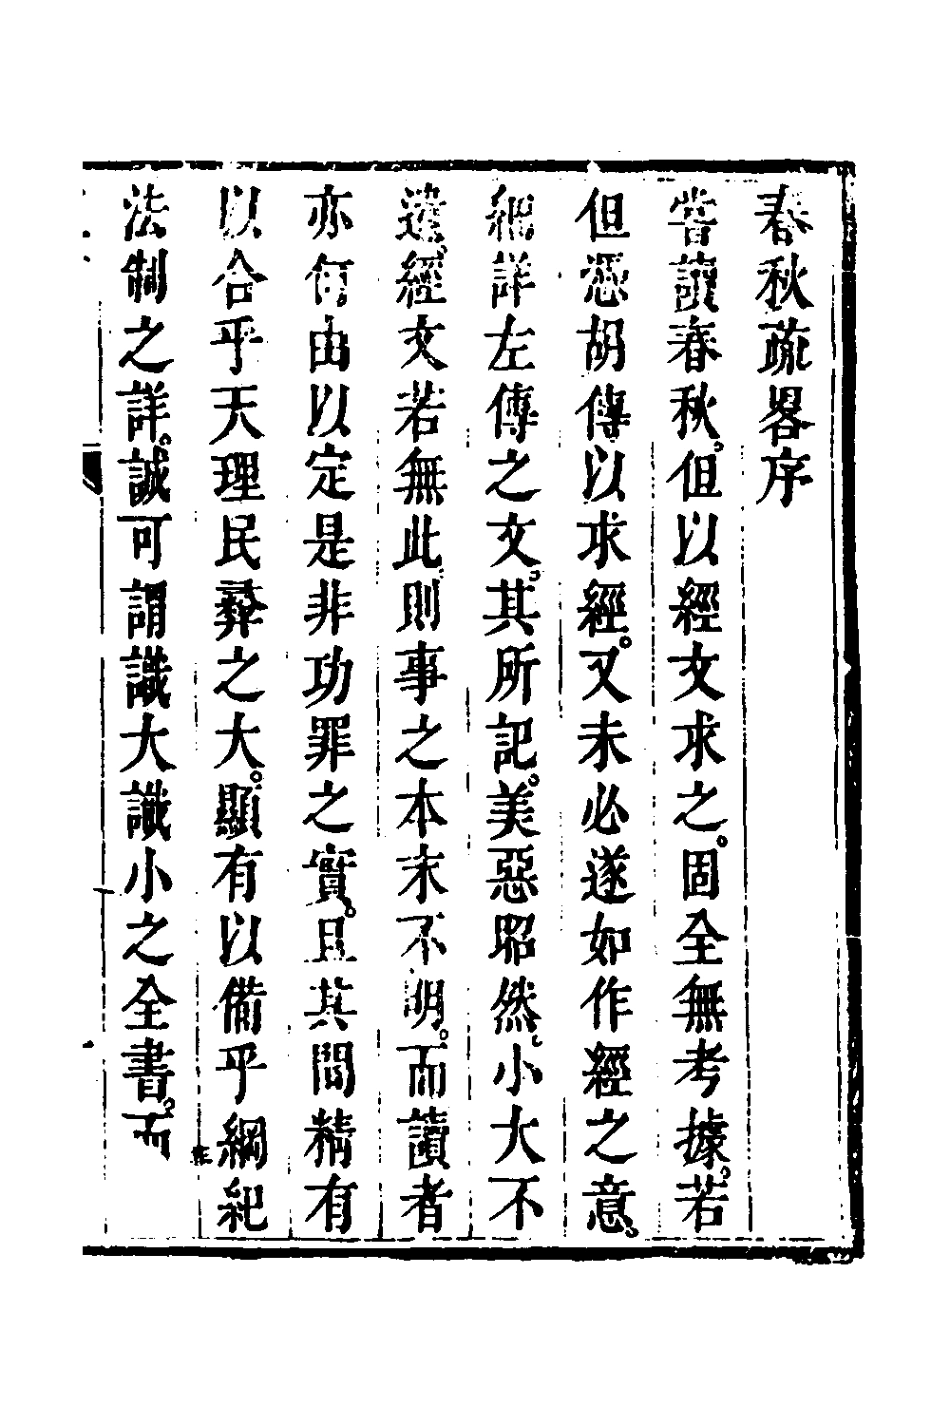 春秋疏畧序
嘗讀春秋但以經文求之固全無考據若
但憑胡傳以求經又未必遂如作經之意
細詳左傳之文其所記美惡昭然小大不
遺經文若無此則事之本末不明而讀者
亦何由以定是非功罪之實且其間精有
以合乎天理民彛之大顯有以備乎綱紀
法制之詳誠可謂識大識小之全書而